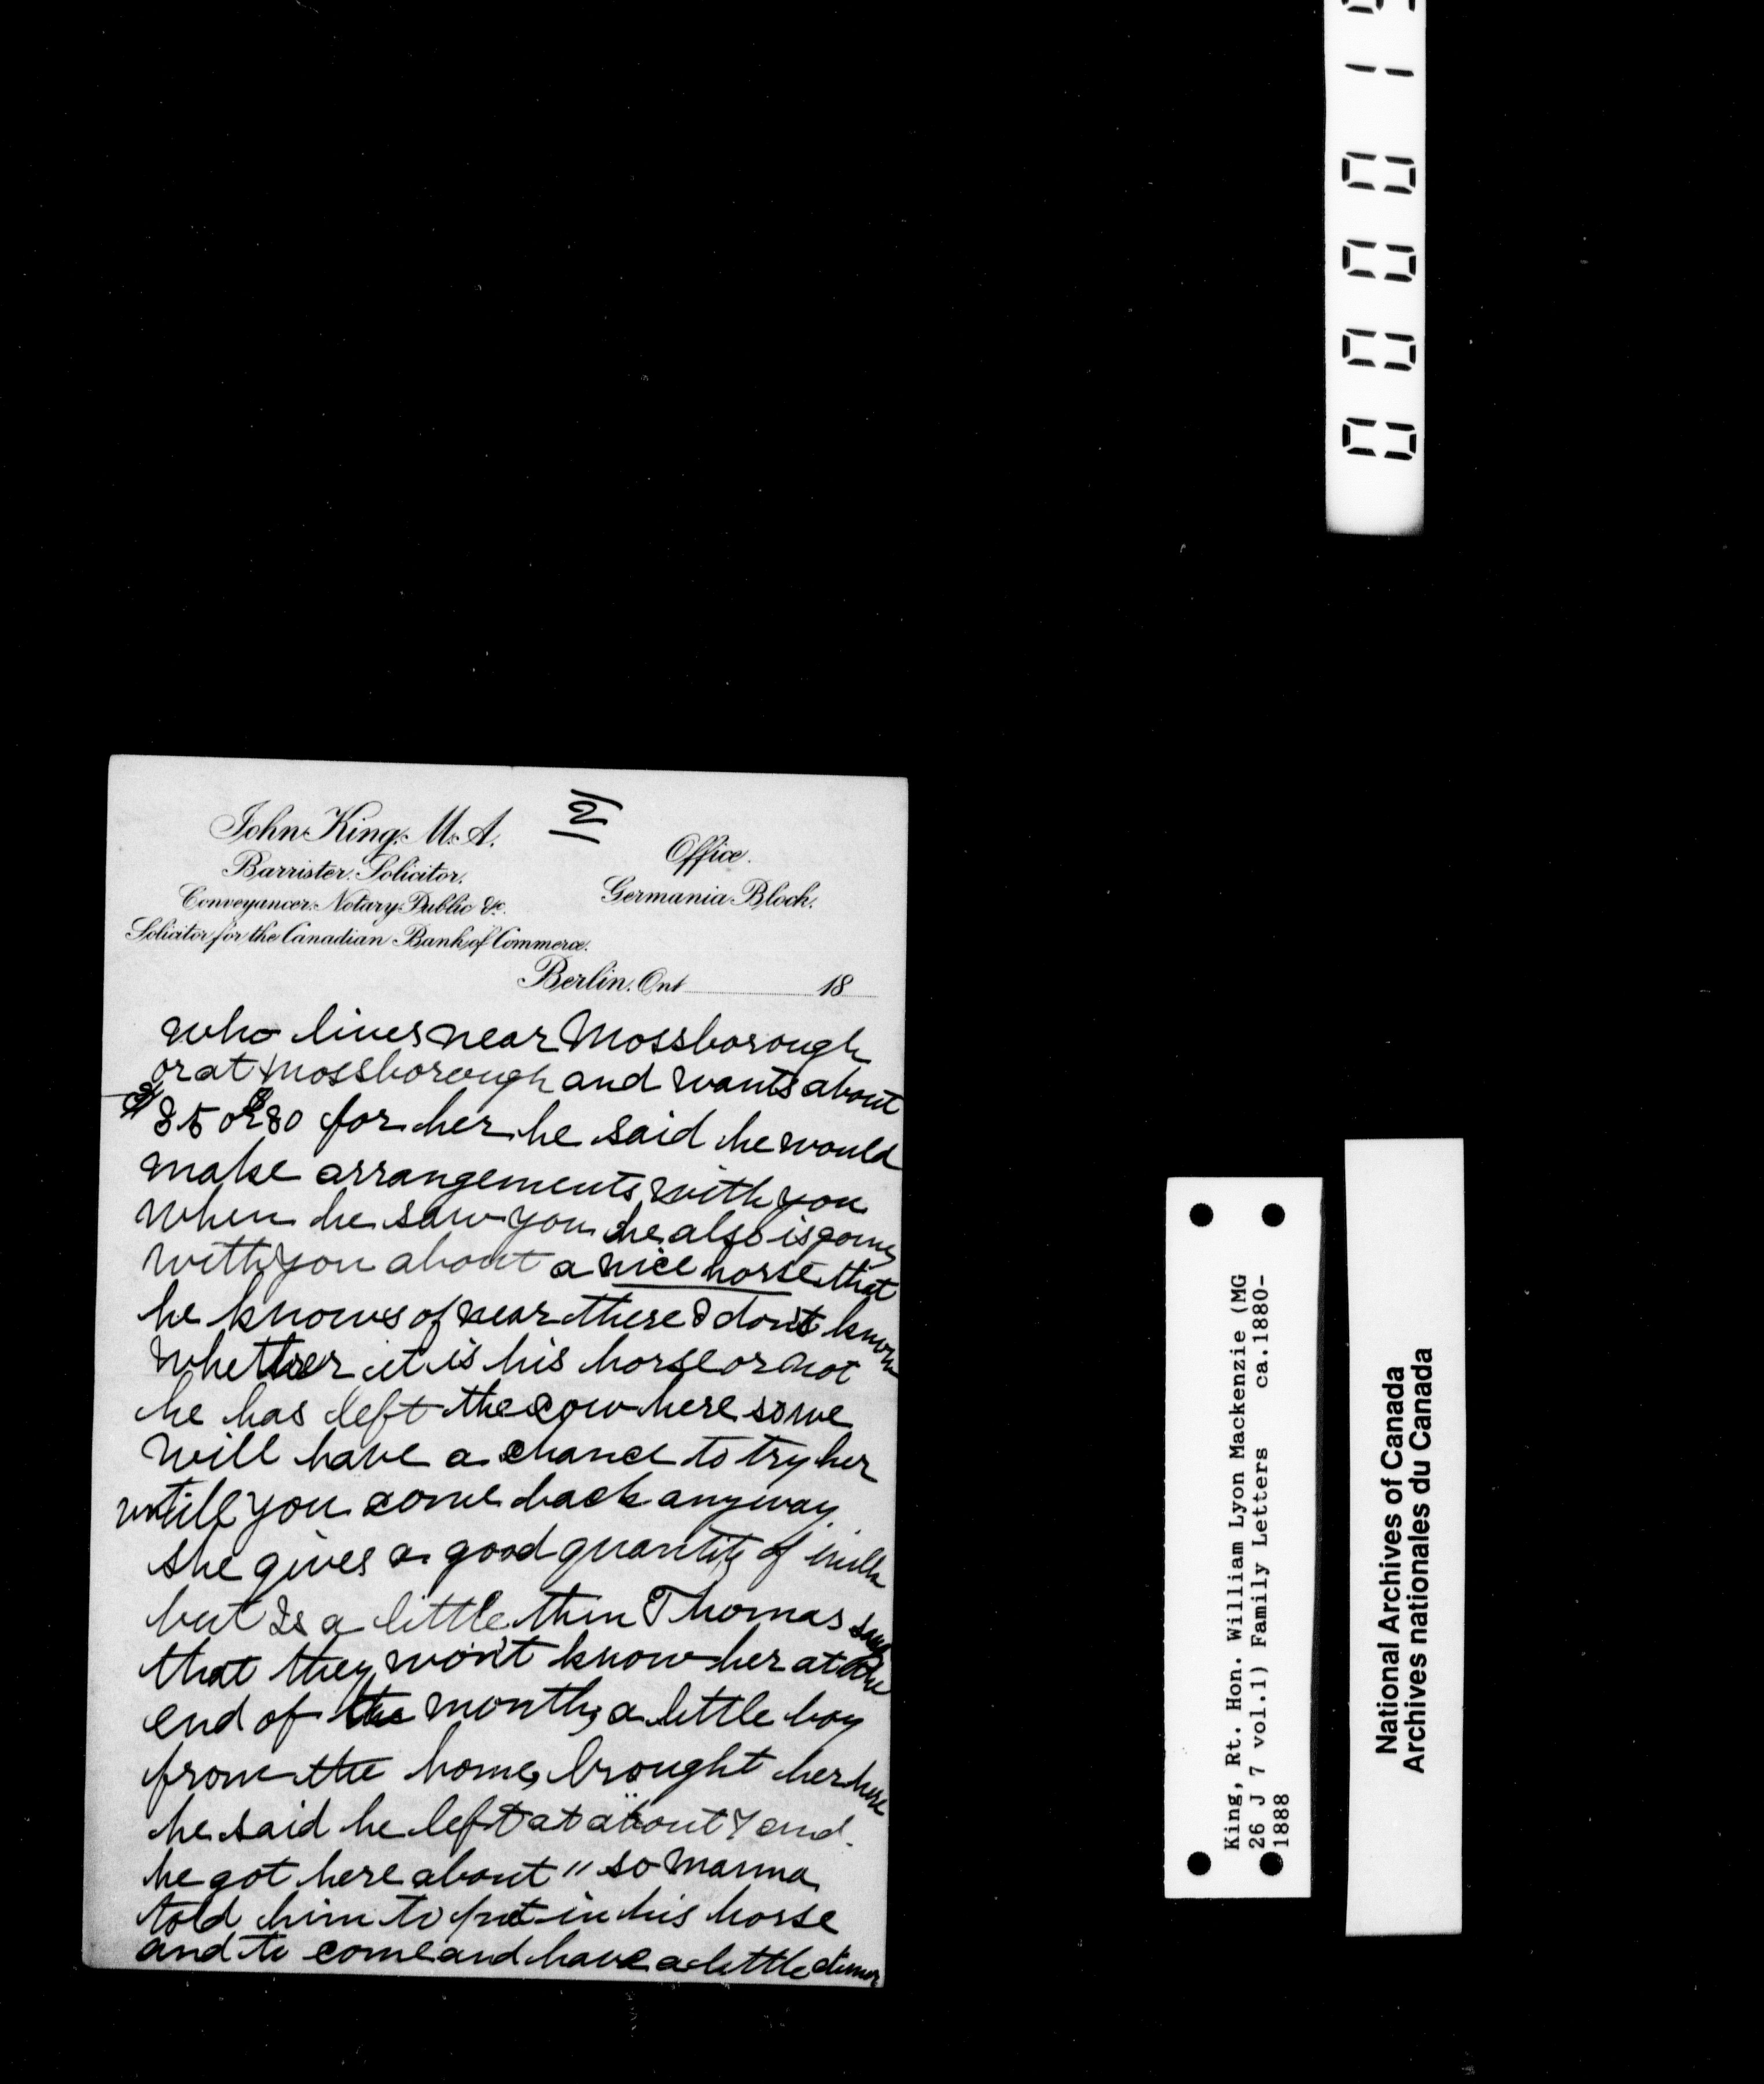 John King, M.A.
Barrister, Solicitor,
Conveyancer, Notary Public &c.
Solicitor for the Canadian Bank of Commerce.
|2|
Office.
Germania Block.
Berlin, Ont 18
who lives near Mossborough
or at Mossborough and wants about
$35 or $30 for her he said he would
make arrangements with you
when he saw you he also is going
with you about a nice horse that
he knows of near there I don't know
whether it is his horse or not
he has left the cow here so we
will have a chance to try her
untill you come back anyway
she gives a good quantity of milk
but is a little thin Thomas says
that they won't know her at the
end of the month, a little boy
from the home, brought her here
he said he left at about 7 and
he got here about 11 so Mamma
told him to put in his horse
and to come and have a little dinner
0 0 0 0 1
King, Rt. Hon. William Lyon Mackenzie (MG
26 J 7 vol.1) Family Letters ca.1880-
1888
National Archives of Canada
Archives nationales du Canada